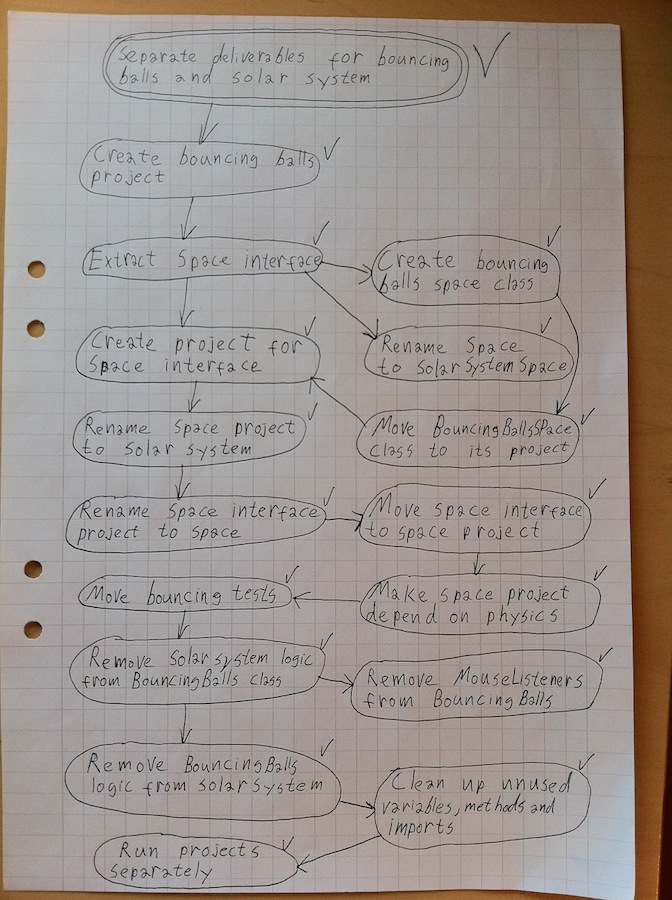 Separate deliverables for bouncing
balls and solar system
Create bouncing balls
project
Extract Space interface
Create bouncing
balls space class
Create project for
Space interface
Rename Space
to SolarSystemSpace
Rename Space project
to Solar system
Move BouncingBallsSpace
class to its project
Rename Space interface
project to space
Move space interface
to space project
Move bouncing tests
Make space project
depend on physics
Remove Solarsystem logic
from BouncingBalls class
Remove MouseListeners
from BouncingBalls
Remove BouncingBalls
logic from solarsystem
Clean up unused
variables, methods and
imports
Run projects
separately